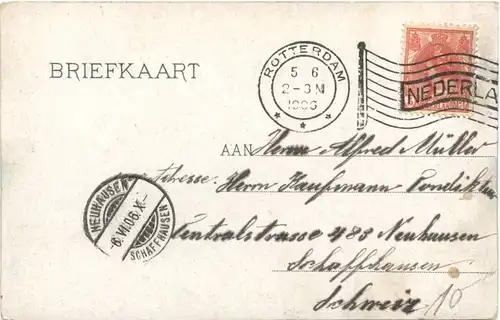 BRIEFKAART
ROTTERDAM
5 6
2-3N
1906
NEDERLA
AAN Herrn Alfred Müller
Adresse: Herrn Kaufmann
Centralstrasse 483 Neuhausen
Schaffhausen
Schweiz
10
NEUHAUSEN
6.VI.06.X-
SCHAFFHAUSEN